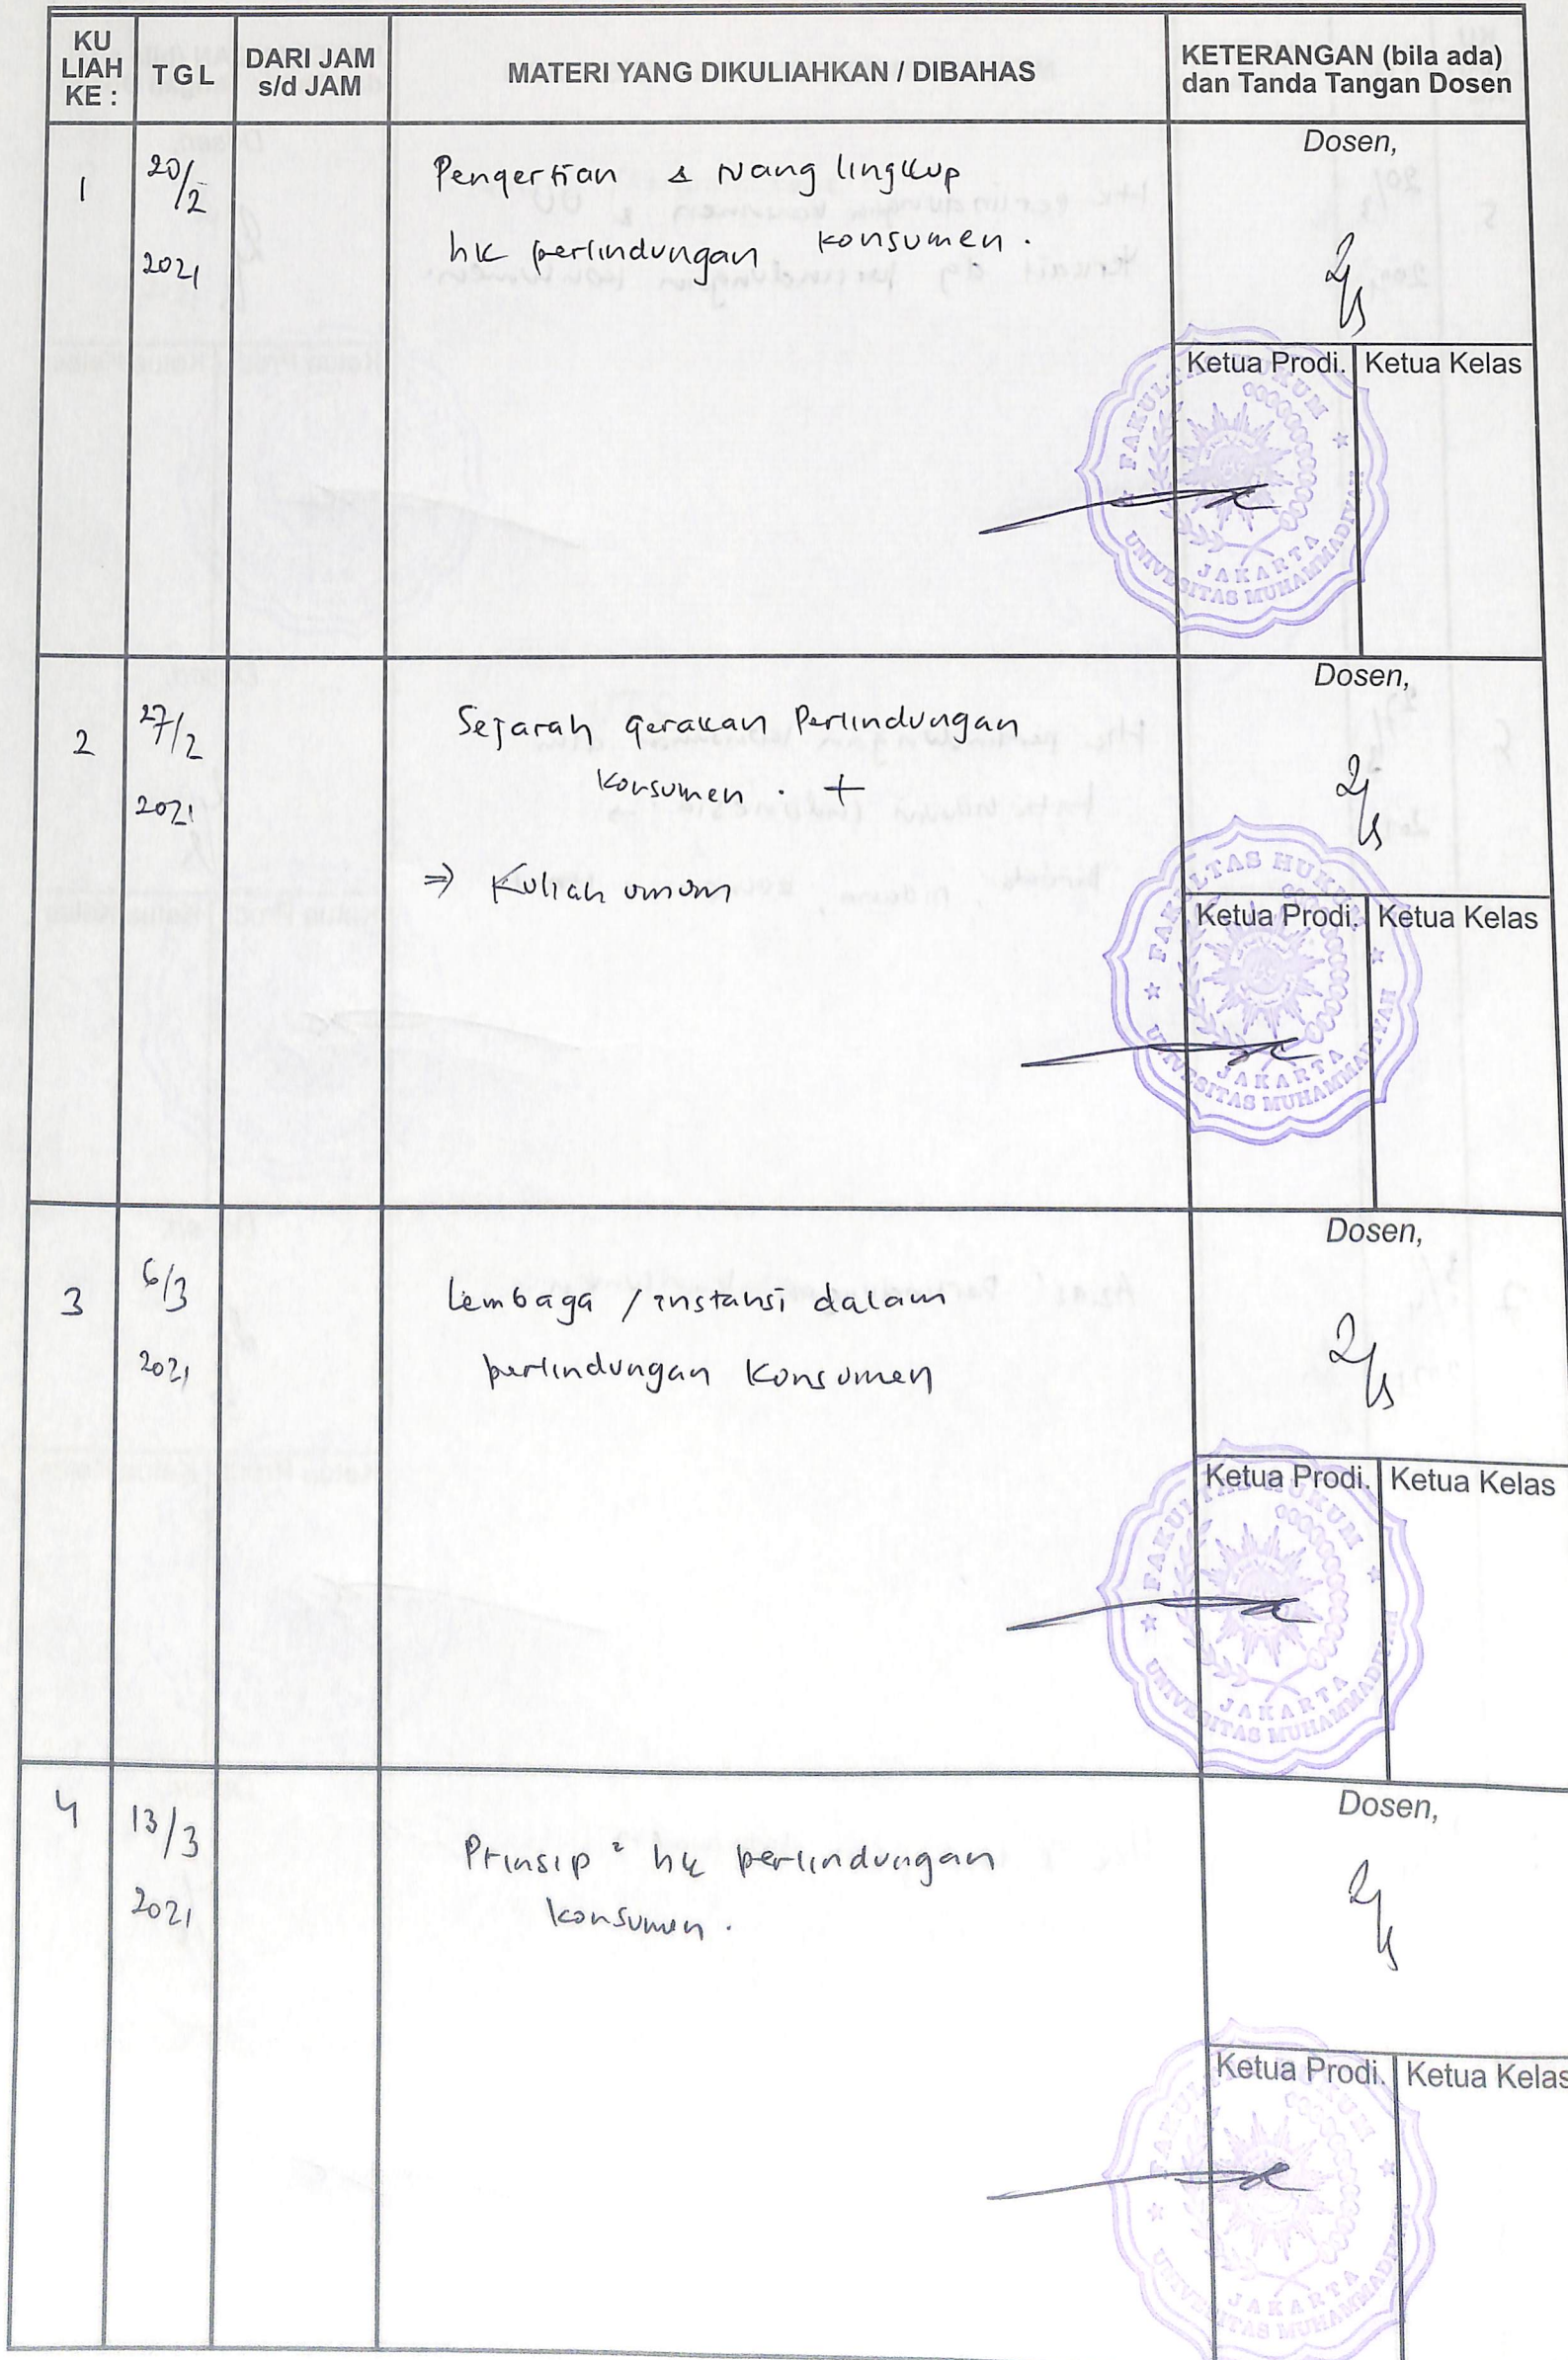 KU
LIAH
KE :
TGL
DARI JAM
s/d JAM
MATERI YANG DIKULIAHKAN / DIBAHAS
KETERANGAN (bila ada)
dan Tanda Tangan Dosen
1
20/2
2021
Pengertian & ruang lingkup
hk perlindungan konsumen .
Dosen,
Ketua Prodi.
Ketua Kelas
FAKULTAS HUKUM
JAKARTA
UNIVESITAS MUHAMMADIYAH
2
27/2
2021
Sejarah gerakan Perlindungan
konsumen . +
⇒ Kuliah umum
Dosen,
Ketua Prodi.
Ketua Kelas
FAKULTAS HUKUM
JAKARTA
UNIVESITAS MUHAMMADIYAH
3
6/3
2021
Lembaga / instansi dalam
perlindungan Konsumen
Dosen,
Ketua Prodi.
Ketua Kelas
FAKULTAS HUKUM
JAKARTA
UNIVESITAS MUHAMMADIYAH
4
13/3
2021
Prinsip ² hk perlindungan
konsumen .
Dosen,
Ketua Prodi.
Ketua Kelas
FAKULTAS HUKUM
JAKARTA
UNIVESITAS MUHAMMADIYAH